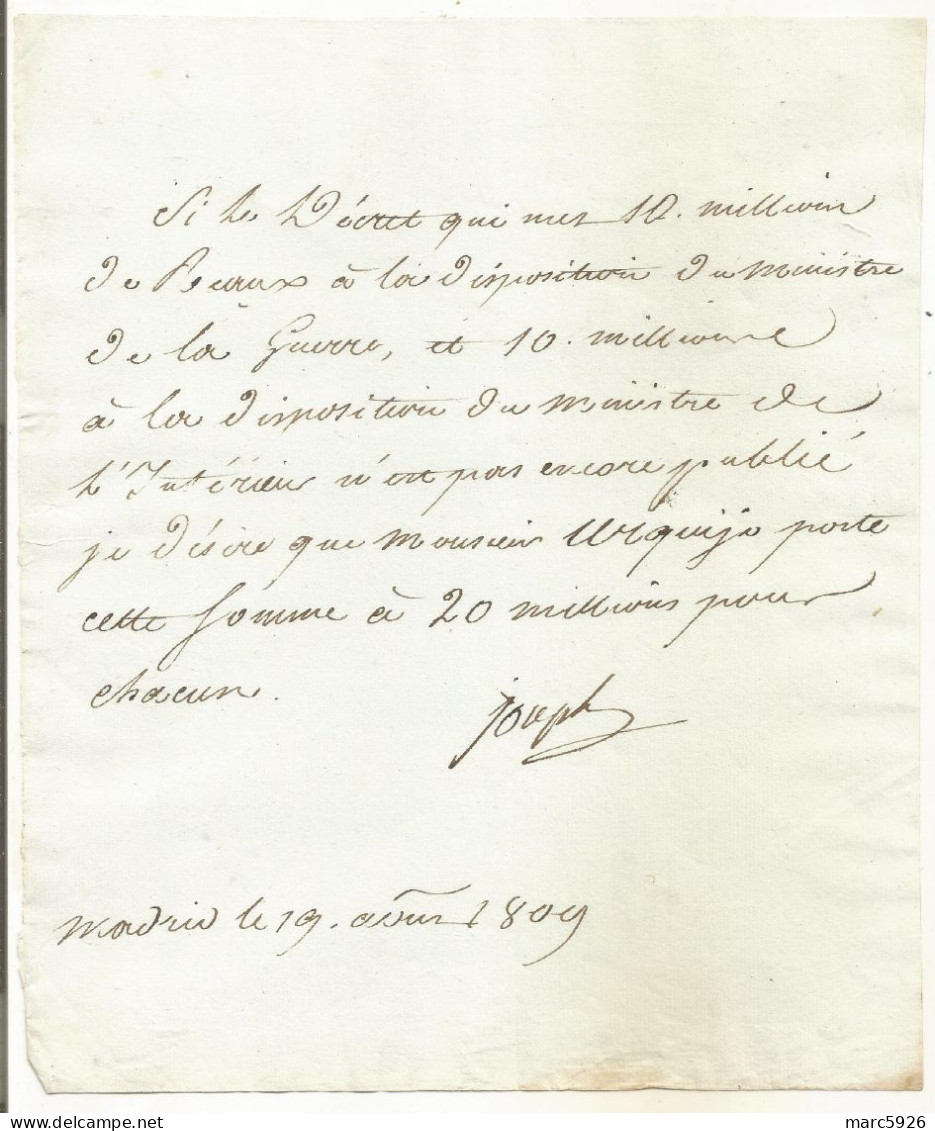 Si le Décret qui met 10. million
de Reaux à la disposition du Ministre
de la Guerre, et 10. millions
à la disposition du Ministre de
l'Intérieur n'est pas encore publié
je désire que Monsieur Urquijo porte
cette somme à 20 millions pour
chacun.
Joseph
Madrid le 19. août 1809
marc5926